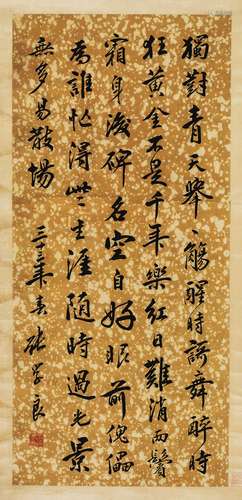 獨對青天舉舉觴醒時歌舞醉時
狂黃金不是千年樂紅日難消兩鬢
霜身後碑名空自好眼前傀儡
為誰忙得些生涯隨時過光景
無多易散場
三十三年春 張學良